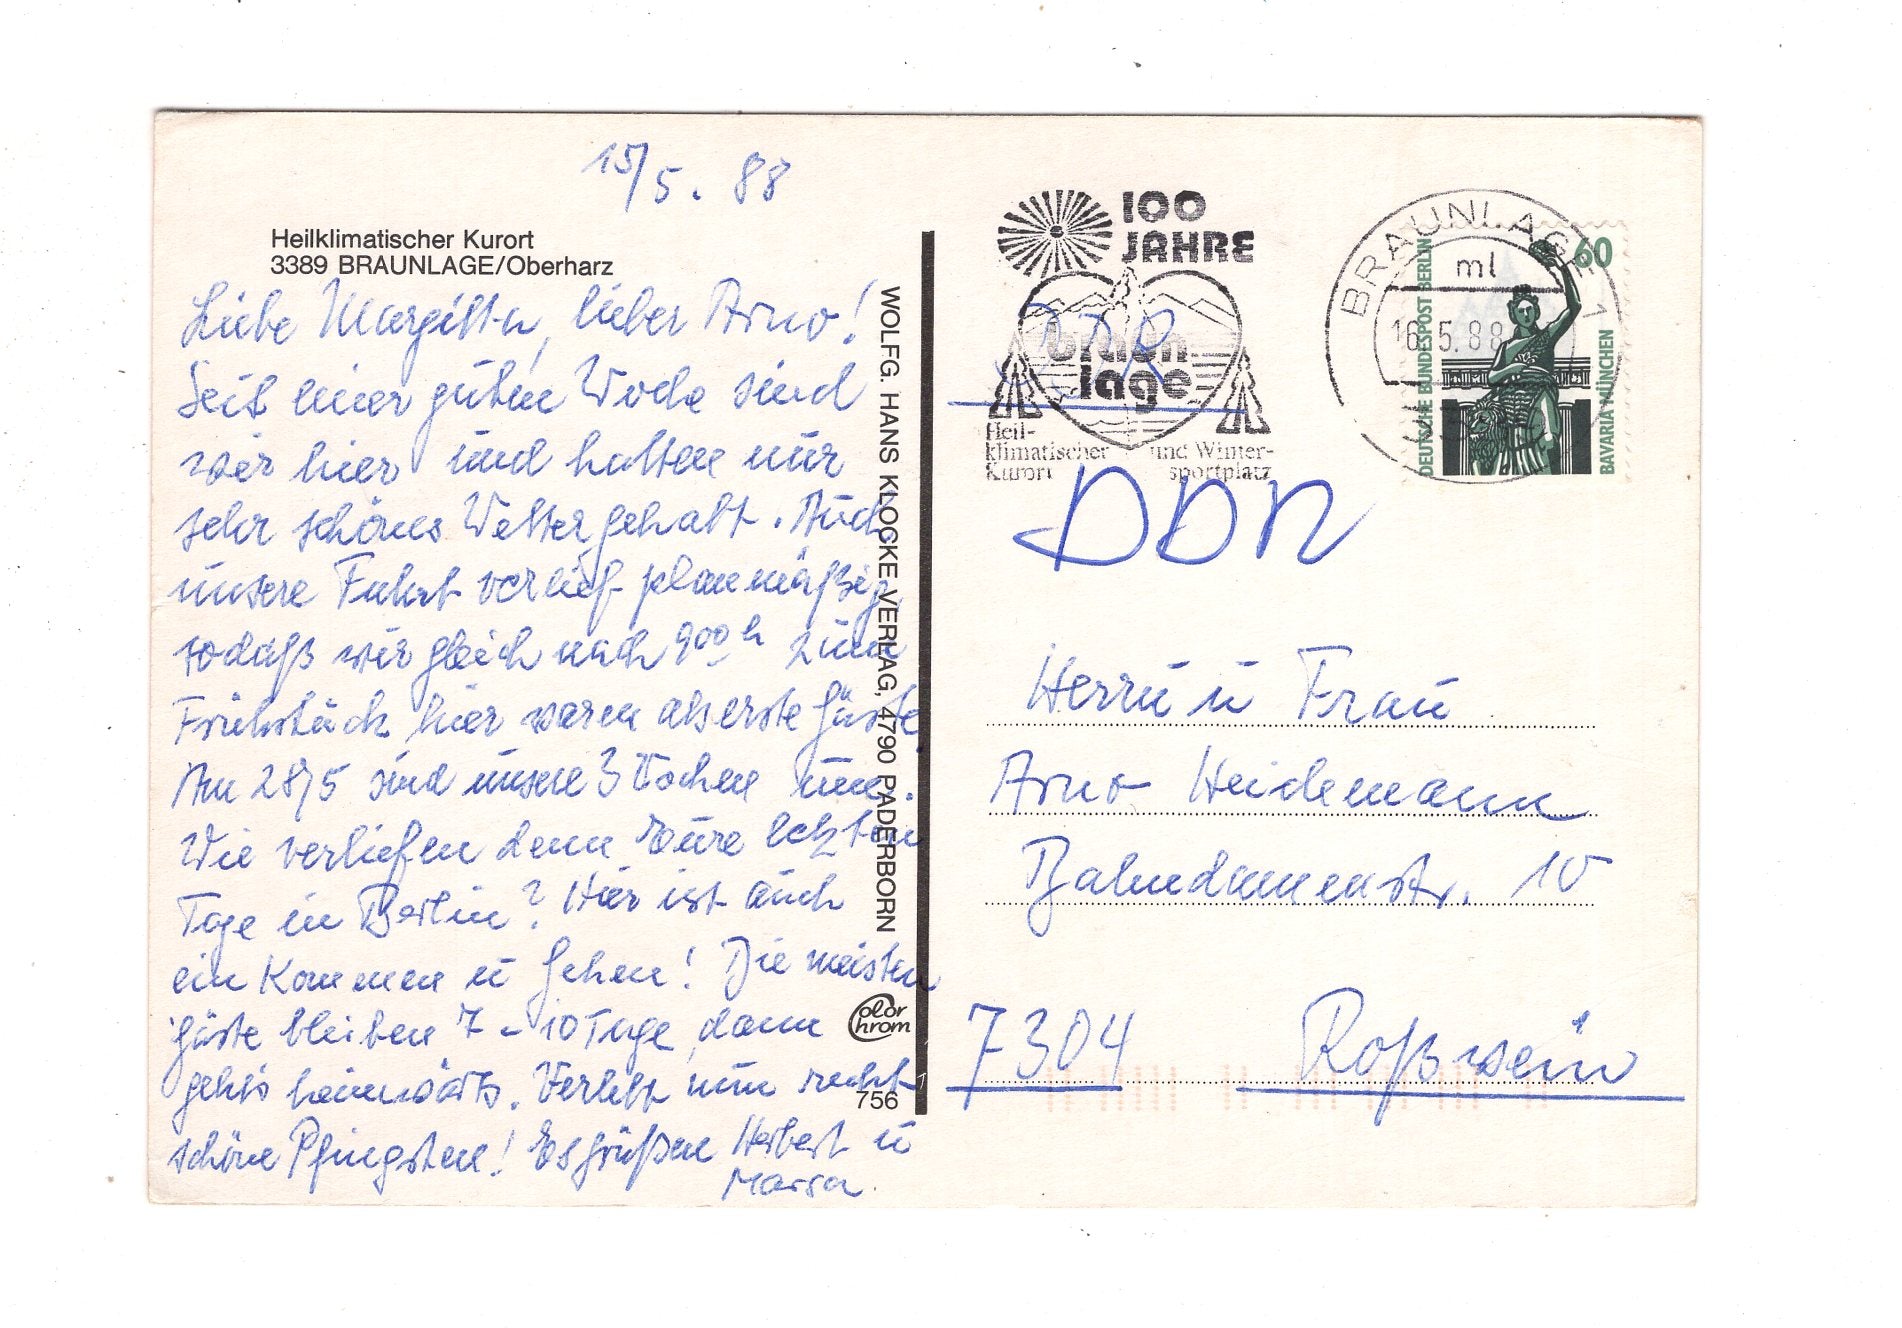 15/5. 88
Heilklimatischer Kurort
3389 BRAUNLAGE/Oberharz
Liebe Margitta, lieber Arno!
Seit einer guten Woche sind
wir hier und hatten nur
sehr schönes Wetter gehabt. Auch
unsere Fahrt verlief planmäßig
sodaß wir gleich nach 9⁰⁰ h zum
Frühstück hier waren als erste Gäste.
Am 28/5 sind unsere 3 Wochen um.
Wie verliefen denn Eure letzten
Tage in Berlin? Hier ist auch
ein Kommen u Gehen! Die meisten
Gäste bleiben 7 - 10 Tage, dann
geht's heimwärts. Verlebt nun recht
schöne Pfingsten! Es grüßen Herbert u
WOLFG. HANS KLOCKE VERLAG, 4790 PADERBORN
Color Chrom
756
100
JAHRE
Braun
lage
Heil-
klimatischer
Kurort
und Winter-
sportplatz
BRAUNLAGE 1
ml
16.5.88
60
DEUTSCHE BUNDESPOST BERLIN
BAVARIA MÜNCHEN
DDR
DDR
Herrn u Frau
Arno Heidemann
Bahndammstr. 10
7304 Roßwein